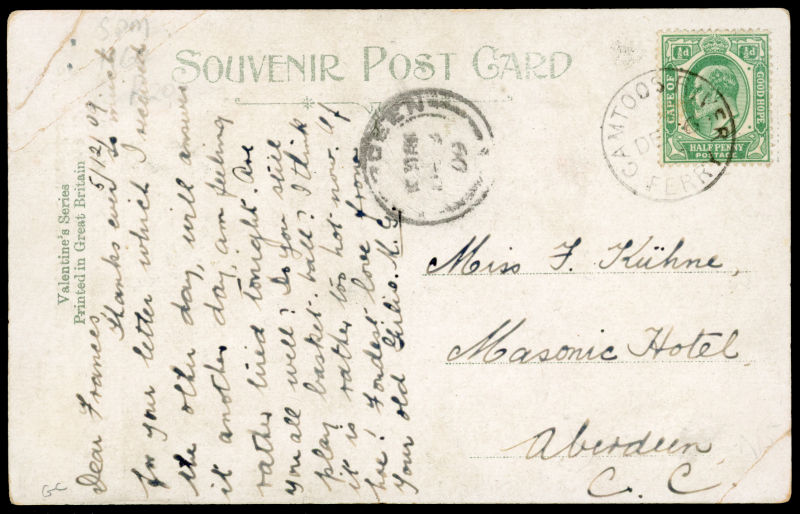 SOUVENIR POST CARD
Valentine's Series
Printed in Great Britain
5/12/09
Dear Frances
Thanks ever so much
for your letter which I received
the other day, will answer
it another day, am feeling
rather tired tonight. Are
you all well? Do you still
play basket ball? I think
it is rather too hot now. Of
here! Fondest love from
Your old
½d ½d
CAPE OF GOOD HOPE
HALFPENNY
POSTAGE
GAMTOOS RIVER
DE
FERRY
09
Miss F. Kühne,
Masonic Hotel
Aberdeen
C. C.
GC
5pm